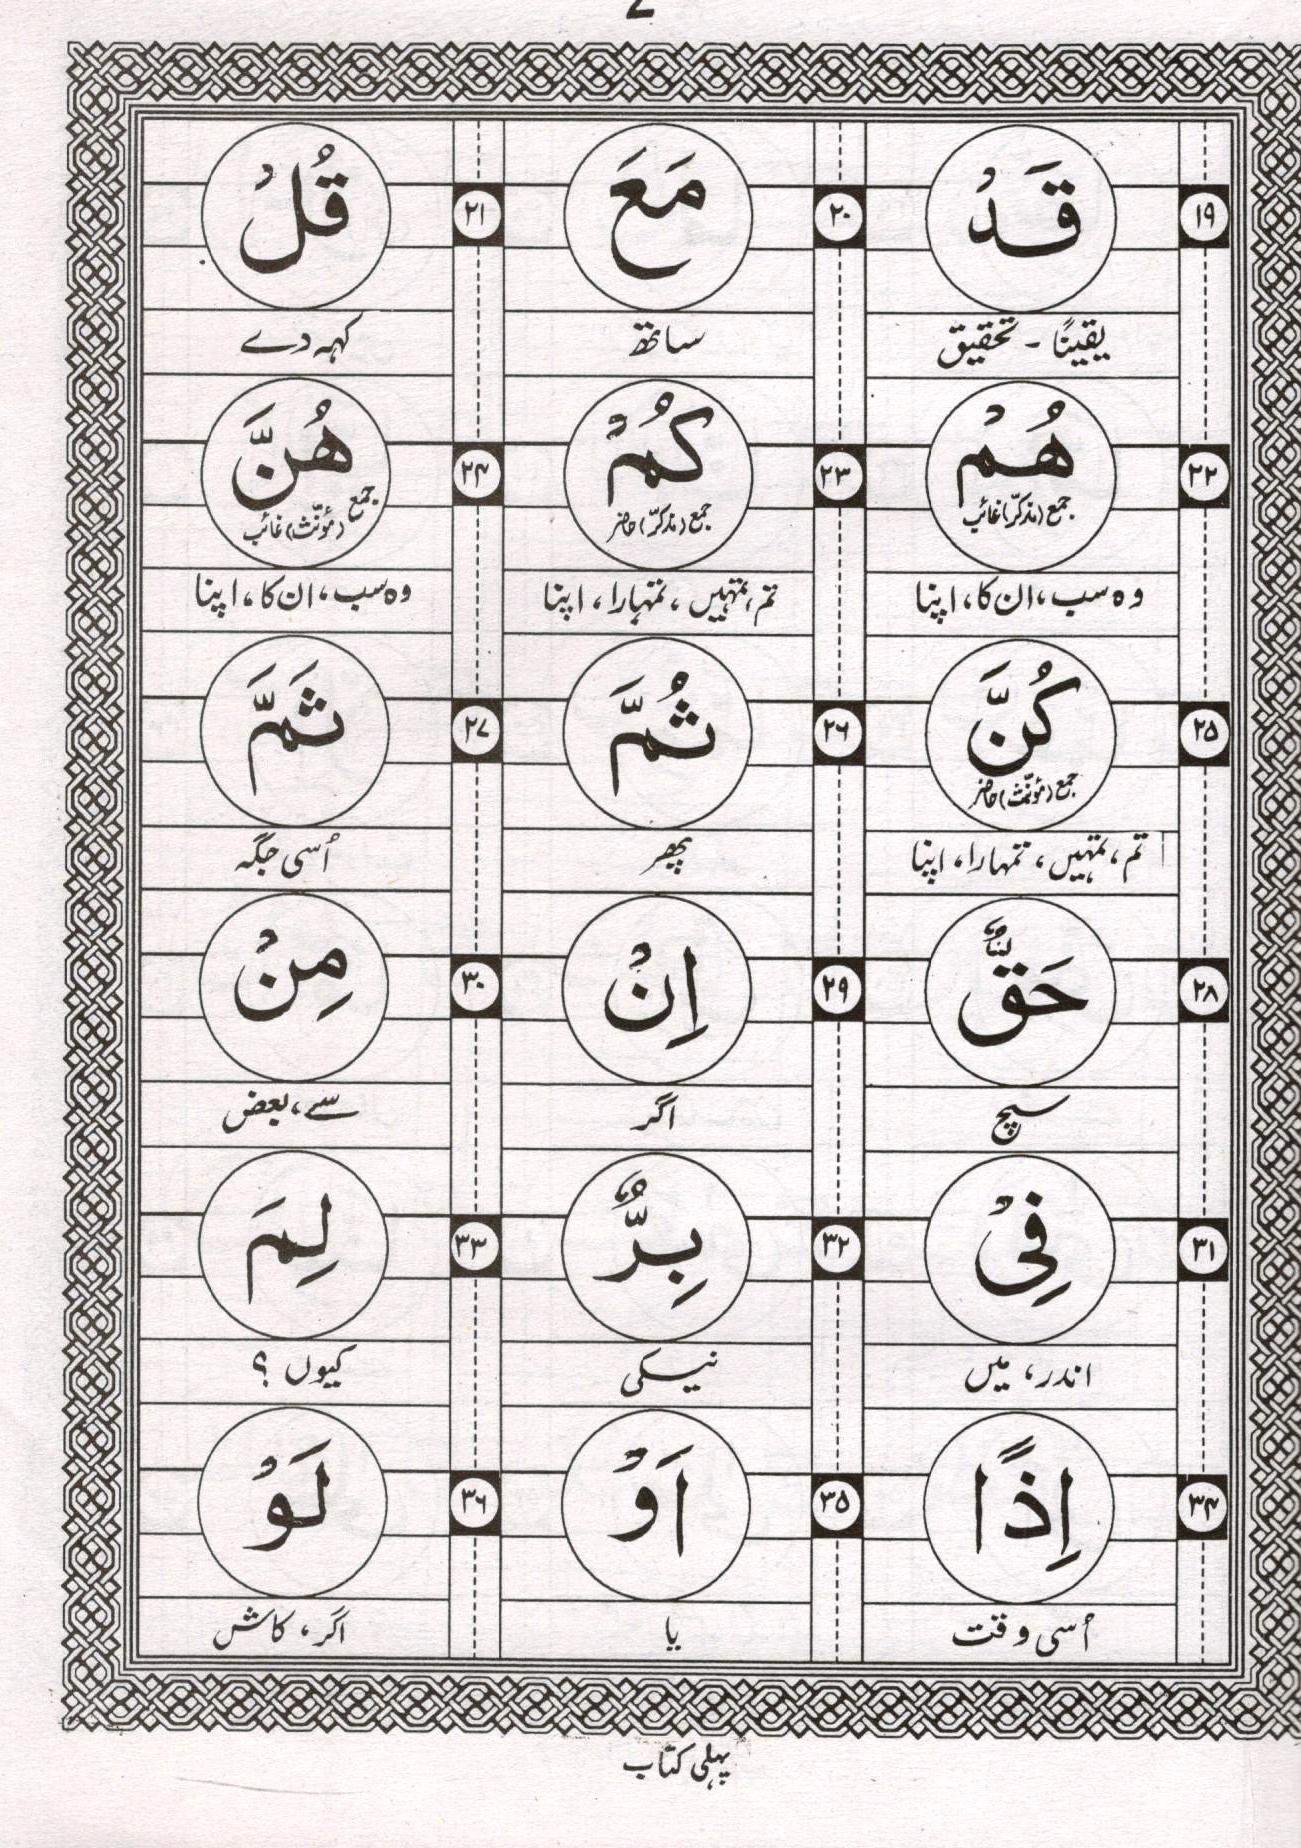 ۱۹ قَدْ ۲۰ مَعَ ۲۱ قُلْ
یقینًا - تحقیق ساتھ کہہ دے
۲۲ هُمْ ۲۳ کُمْ ۲۴ هُنَّ
جمع (مذکّر) غائب جمع (مذکّر) حاضر جمع (مؤنّث) غائب
وہ سب، ان کا، اپنا تم، تمہیں، تمہارا، اپنا وہ سب، ان کا، اپنا
۲۵ کُنَّ ۲۶ ثُمَّ ۲۷ ثَمَّ
جمع (مؤنّث) حاضر
تم، تمہیں، تمہارا، اپنا پھر اُسی جگہ
۲۸ حَقٌّ ۲۹ اِنْ ۳۰ مِنْ
سچ اگر سے، بعض
۳۱ فِیْ ۳۲ بِرٌّ ۳۳ لِمَ
اندر، میں نیکی کیوں ؟
۳۴ اِذًا ۳۵ اَوْ ۳۶ لَوْ
اُسی وقت یا اگر، کاش
پہلی کتاب